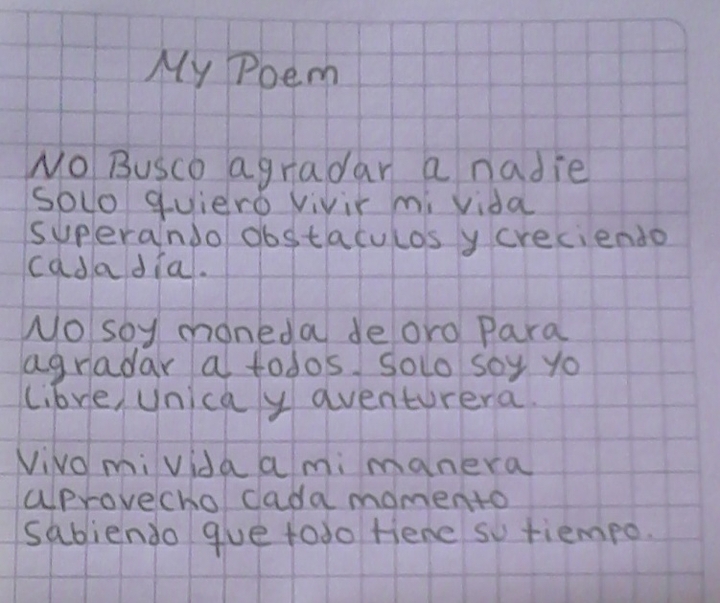 My Poem
No Busco agradar a nadie
Solo quiero vivir mi vida
superando obstaculos y creciendo
cada día.
No soy moneda de oro para
agradar a todos. Solo soy yo
Libre, unica y aventurera.
Vivo mi vida a mi manera
aprovecho cada momento
sabiendo que todo tiene su tiempo.